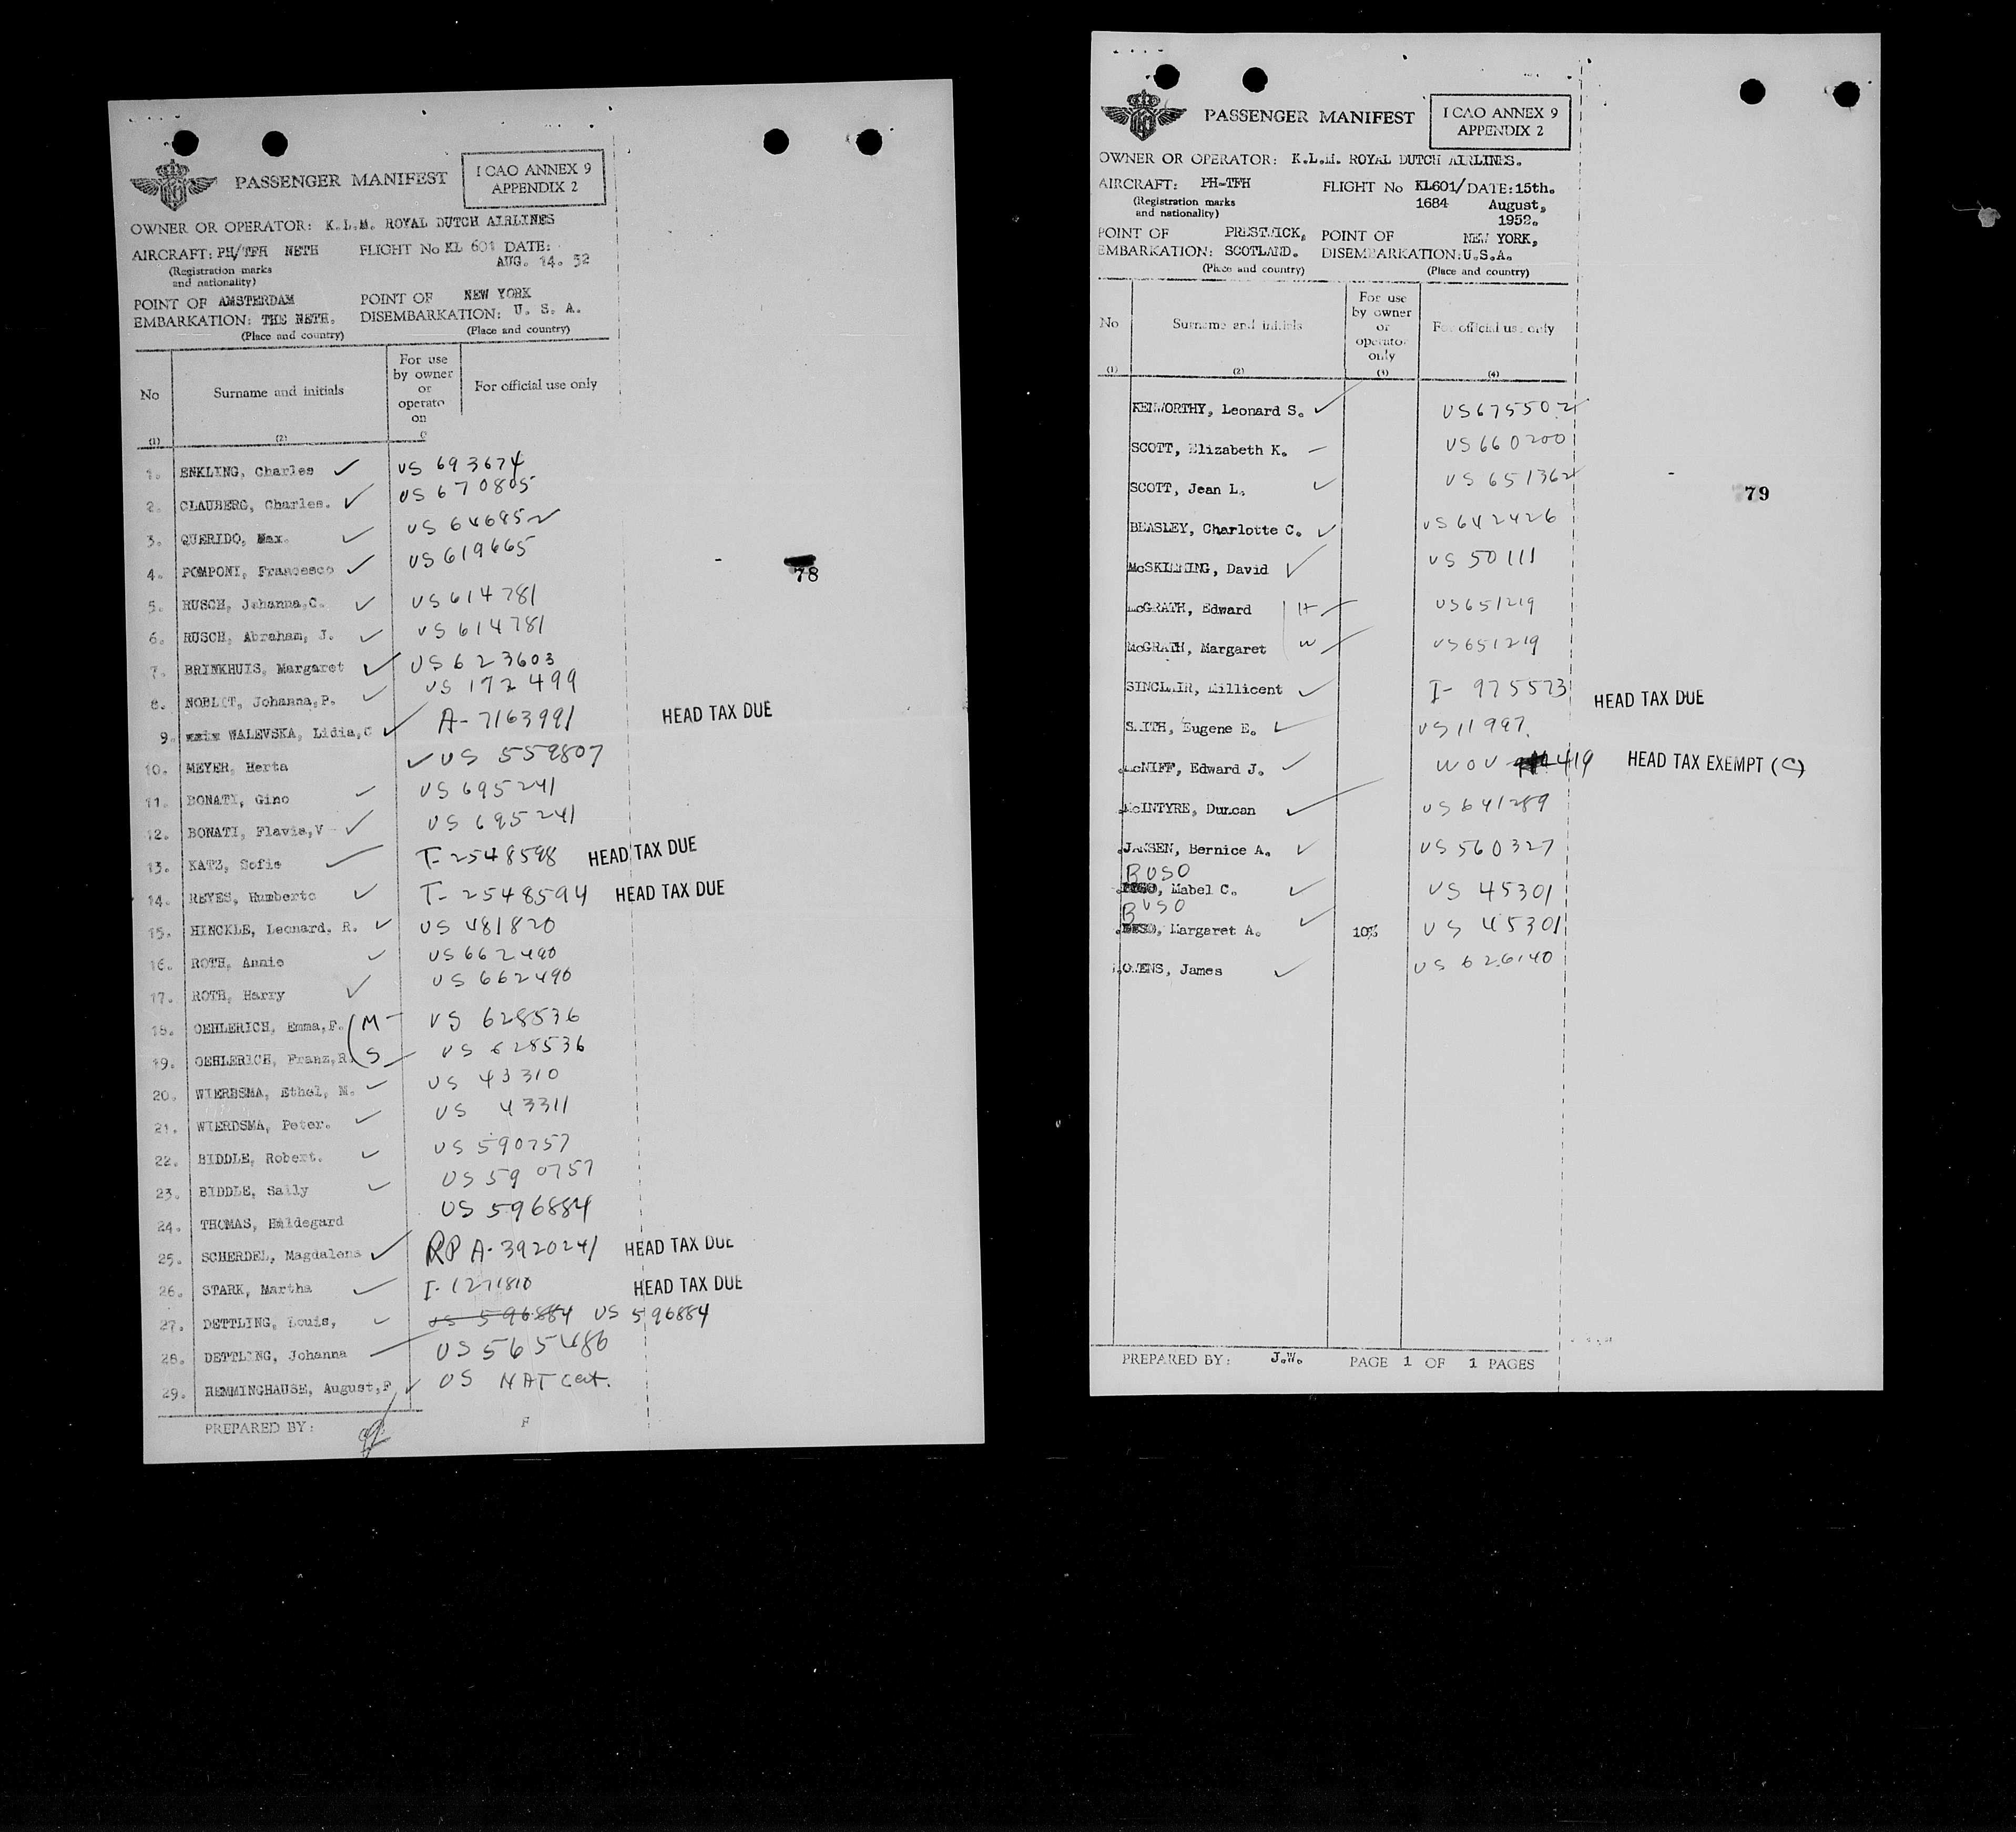 PASSENGER MANIFEST
I CAO ANNEX 9
APPENDIX 2
OWNER OR OPERATOR: K.L.M. ROYAL DUTCH AIRLINES
AIRCRAFT: PH/TFH NETH FLIGHT No KL 601 DATE:
AUG. 14. 52
(Registration marks
and nationality)
POINT OF AMSTERDAM POINT OF NEW YORK
EMBARKATION: THE NETH. DISEMBARKATION: U. S. A.
(Place and country) (Place and country)
No Surname and initials For use by owner or operato on For official use only
(1) (2)
1. ENKLING, Charles US 693674
2. CLAUBERG, Charles. US 670805
3. QUERIDO, Max. US 646852
4. POMPONI, Francesco US 619665
78
5. RUSCH, Johanna,C. US 614781
6. RUSCH, Abraham, J. US 614781
7. BRINKHUIS, Margaret US 623603
8. NOBLIT, Johanna,P. US 172499
9. WALEVSKA, Lidia,C A-7163991 HEAD TAX DUE
10. MEYER, Herta US 559807
11. BONATI, Gino US 695241
12. BONATI, Flavia,V US 695241
13. KATZ, Sofie T-2548598 HEAD TAX DUE
14. REYES, Humberto T-2548594 HEAD TAX DUE
15. HINCKLE, Leonard, R. US 481820
16. ROTH, Annie US 662490
17. ROTH, Harry US 662490
18. OEHLERICH, Emma,F. M US 628536
19. OEHLERICH, Franz,R. S US 628536
20. WIERDSMA, Ethel, M. US 43310
21. WIERDSMA, Peter. US 43311
22. BIDDLE, Robert. US 590757
23. BIDDLE, Sally US 590757
24. THOMAS, Hildegard US 596884
25. SCHERDEL, Magdalena RP A-3920241 HEAD TAX DUE
26. STARK, Martha I-1271810 HEAD TAX DUE
27. DETTLING, Louis, US 596884 US 596884
28. DETTLING, Johanna US 565486
29. REMMINGHAUSE, August,F US NAT Cert.
PREPARED BY:
PASSENGER MANIFEST
I CAO ANNEX 9
APPENDIX 2
OWNER OR OPERATOR: K.L.M. ROYAL DUTCH AIRLINES.
AIRCRAFT: PH-TFH FLIGHT No KL601/ DATE: 15th.
(Registration marks 1684 August,
and nationality) 1952.
POINT OF PRESTWICK, POINT OF NEW YORK,
EMBARKATION: SCOTLAND. DISEMBARKATION: U.S.A.
(Place and country) (Place and country)
No Surname and initials For use by owner or operator only For official use only
(1) (2) (3) (4)
KENWORTHY, Leonard S. US675502
SCOTT, Elizabeth K. US 660200
SCOTT, Jean L. US 651362
79
BEASLEY, Charlotte C. US 642426
McSKIMMING, David US 50111
McGRATH, Edward H US651219
McGRATH, Margaret W US651219
SINCLAIR, Millicent I-975573 HEAD TAX DUE
SMITH, Eugene E. US 11997.
McNIFF, Edward J. WOV 419 HEAD TAX EXEMPT (C)
McINTYRE, Duncan US 641289
JANSEN, Bernice A. US 560327
BUSO
Mabel C. US 45301
BUSO
Margaret A. 10% US 45301
OWENS, James US 626140
PREPARED BY: J.W. PAGE 1 OF 1 PAGES